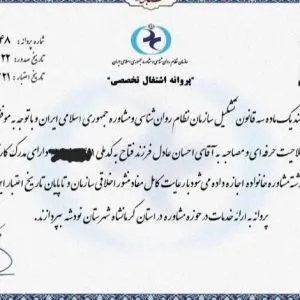 شماره پروانه: ۴۸
تاریخ صدور: ۲۲
تاریخ اعتبار: ۲۱
سازمان نظام روان شناسی و مشاوره جمهوری اسلامی ایران
"پروانه اشتغال تخصصی"
ند یک ماده سه قانون تشکیل سازمان نظام روان شناسی و مشاوره جمهوری اسلامی ایران و با توجه به موفق
لاحیت حرفه ای و مصاحبه به آقای احسان عادل فرزند فتاح به کد ملی دارای مدرک کار
شته مشاوره خانواده اجازه داده می شود با رعایت کامل مفاد منشور اخلاقی سازمان و تا پایان تاریخ اعتبار این
پروانه به ارائه خدمات در حوزه مشاوره در استان کرمانشاه شهرستان نودشه بپردازند.